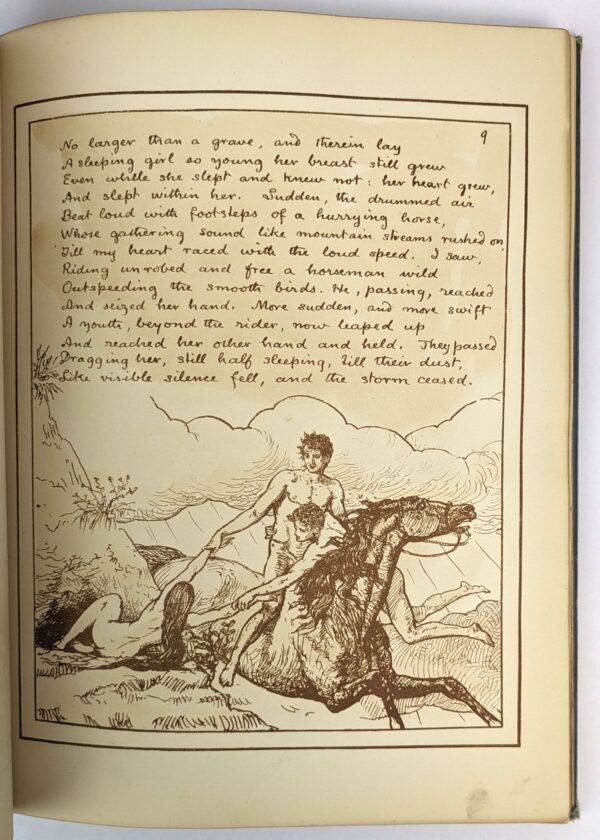 9
No larger than a grave, and therein lay
A sleeping girl so young her breast still grew
Even while she slept and knew not: her heart grew,
And slept within her. Sudden, the drummed air
Beat loud with footsteps of a hurrying horse,
Whose gathering sound like mountain streams rushed on,
Till my heart raced with the loud speed. I saw,
Riding unrobed and free a horseman wild
Outspeeding the smooth birds. He, passing, reached
And seized her hand. More sudden, and more swift
A youth, beyond the rider, now leaped up
And reached her other hand and held. They passed
Dragging her, still half sleeping, till their dust,
Like visible silence fell, and the storm ceased.